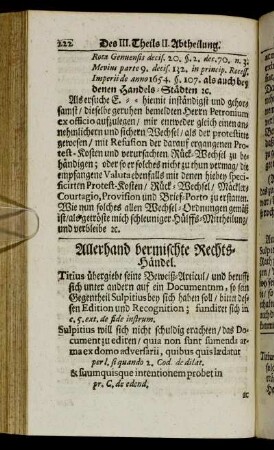 222 Des III. Theils II. Abtheilung.
Rota Genuensis decis. 20. §. 2. dec. 70. n. 3.
Mevius parte 9. decis. 132. in princip. Recess.
Imperii de anno 1654. §. 107. als auch bey
denen Handels-Städten ꝛc.
Als ersuche E. - - hiemit inständigst und gehor-
samst / dieselbe geruhen bemeldten Herrn Petronium
ex officio anzulegen / mir entweder gleich einen an-
nehmlichern und sichern Wechsel / als der protestirte
gewesen / mit Refusion der darauf ergangenen Pro-
test-Kosten und verursachten Rück-Wechsel zu be-
händigen; oder so er solches nicht zu thun vermag / die
empfangene Valuta ebenfalls mit denen hiebey speci-
ficirten Protest-Kosten / Rück-Wechsel / Mäckler-
Courtagio, Provision und Brief-Porto zu erstatten.
Wie nun solches allen Wechsel-Ordnungen gemäß
ist / als getröste mich schleuniger Hülffs-Mittheilung/
und verbleibe ꝛc.
Allerhand vermischte Rechts-
Händel.
Titius übergiebt seine Beweiß-Articul / und berufft
sich unter andern auf ein Documentum, so sein
Gegentheil Sulpitius bey sich haben soll / bittet dessen
Edition und Recognition; fundiret sich in
c. 5. ext. de fide instrum.
Sulpitius will sich nicht schuldig erachten / das Do-
cument zu ediren / quia non sunt sumenda ar-
ma ex domo adversarii, quibus quis lædatur
per l. si quando 2. Cod. de dilat.
& suumquisque intentionem probet in
pr. C. de edend.
ꝛc